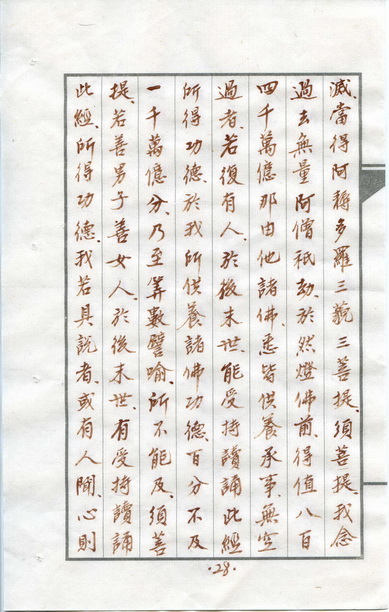 滅、當得阿耨多羅三藐三菩提、須菩提、我念
過去無量阿僧祇劫、於然燈佛前、得值八百
四千萬億那由他諸佛、悉皆供養承事、無空
過者、若復有人、於後末世、能受持讀誦此經
所得功德、於我所供養諸佛功德、百分不及
一、千萬億分、乃至算數譬喻、所不能及、須菩
提、若善男子善女人、於後末世、有受持讀誦
此經、所得功德、我若具說者、或有人聞、心則
·28·